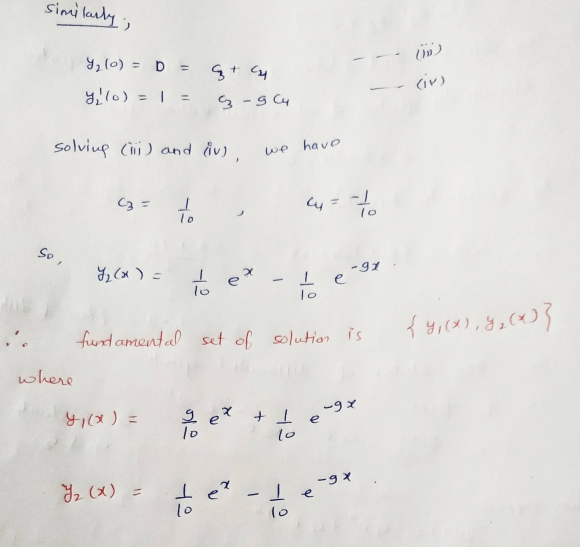 Similarly,
y₂(0) = 0 = c₃ + c₄ —— (iii)
y₂'(0) = 1 = c₃ - 9 c₄ —— (iv)
solving (iii) and (iv), we have
c₃ = 1/10 , c₄ = -1/10
So,
y₂(x) = 1/10 eˣ - 1/10 e⁻⁹ˣ.
∴ fundamental set of solution is { y₁(x), y₂(x)}
where
y₁(x) = 9/10 eˣ + 1/10 e⁻⁹ˣ
y₂(x) = 1/10 eˣ - 1/10 e⁻⁹ˣ.